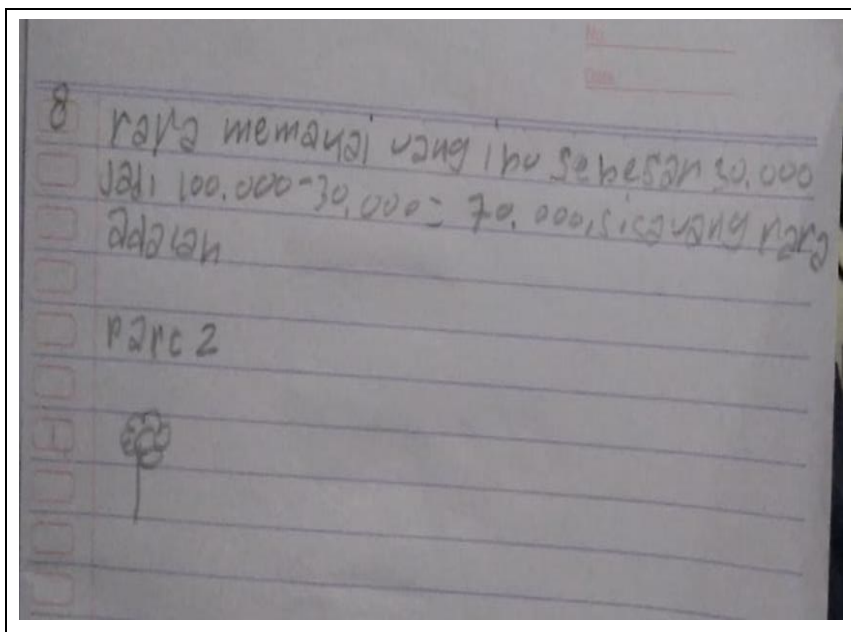 No.
Date
8 rara memakai uang ibu sebesar 30.000
Jadi 100.000-30.000= 70.000, sisa uang rara
adalah
Parc 2